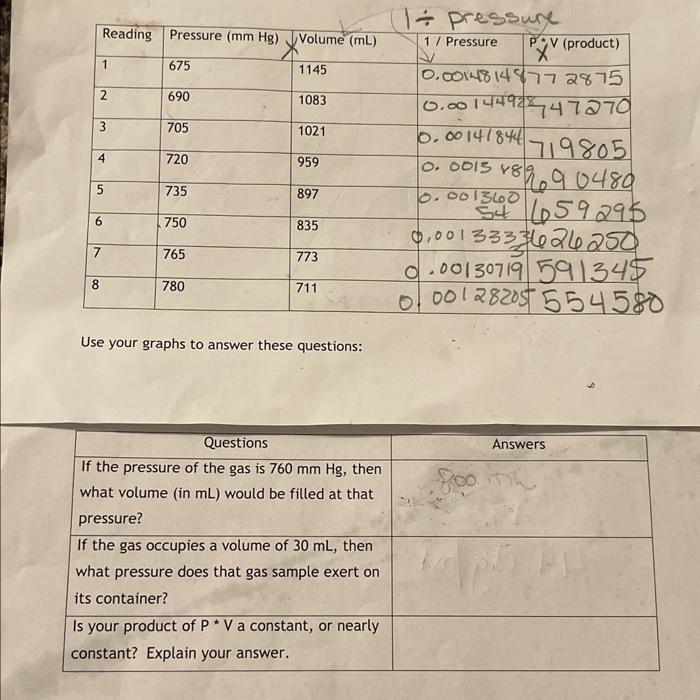 1 ÷ pressure
Reading Pressure (mm Hg) X Volume (mL) 1 / Pressure P * V (product)
X
1 675 1145 0.00148148 772875
2 690 1083 0.00144928 747270
3 705 1021 0.00141844 719805
4 720 959 690480
5 735 897 0.00136054 659295
6 750 835 0.00133333 626250
7 765 773 0.00130719 591345
8 780 711 0.00128205 554580
Use your graphs to answer these questions:
Questions Answers
If the pressure of the gas is 760 mm Hg, then 800 mL
what volume (in mL) would be filled at that
pressure?
If the gas occupies a volume of 30 mL, then
what pressure does that gas sample exert on
its container?
Is your product of P * V a constant, or nearly
constant? Explain your answer.